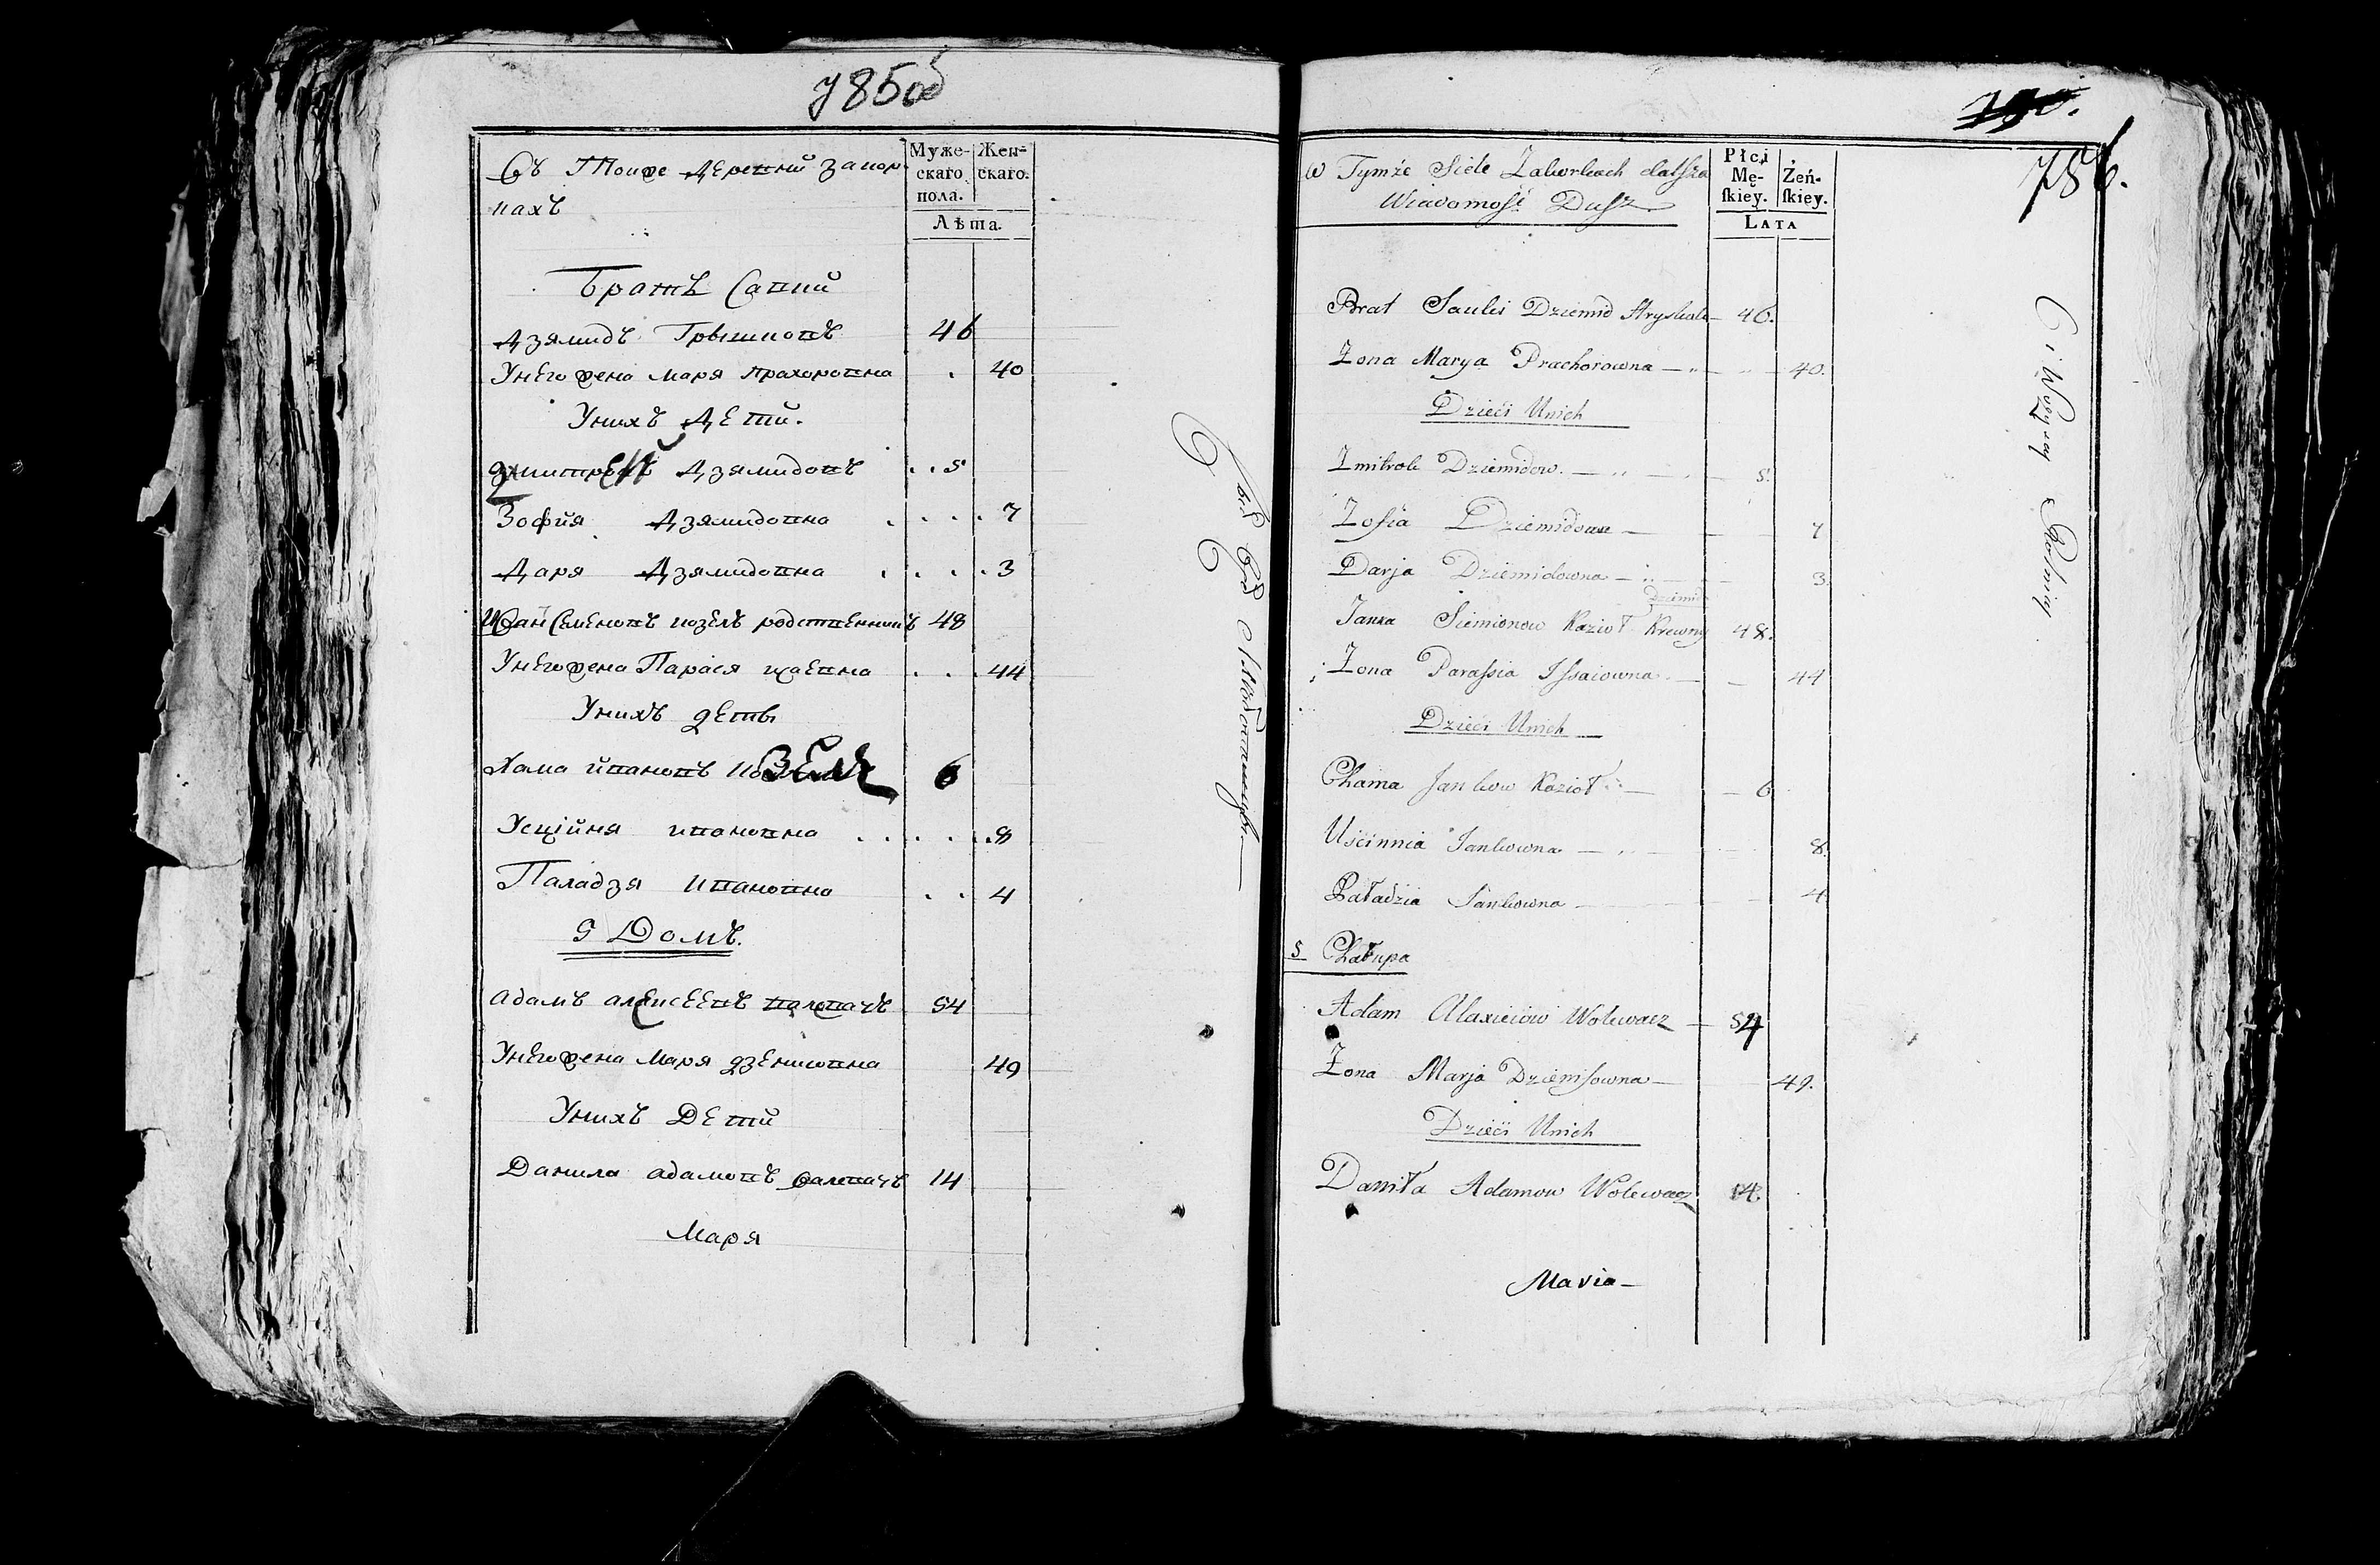 785об
Въ Тойже деревни Запор
кахъ
Муже-
скаго
пола.
Жен-
скаго.
Лѣта.
Братъ Савки
Дзямидъ Грышковъ 46
Унего жена Маря Прахоровна 40
Унихъ Дети.
Дзямидовъ 5
Зофия Дзямидовна 7
Даря Дзямидовна 3
Семеновъ козелъ родственникъ 48
Унего жена Парася 44
Унихъ дети
Хама Ивановъ 6
Усційня Ивановна 8
Паладзя Ивановна 4
5 Домъ.
Адамъ алексеевъ валевачъ 54
Унего жена Маря дзенисовна 49
Унихъ Дети
Данила адамовъ валевачъ 14
Маря
786.
w Tymże Siele Zaborkach dalsza
Wiadomość Dusz
Płci
Mę-
skiey.
Żeń-
skiey.
Lata
Brat Sauki Dziemid 46.
Zona Marya Prachorowna 40.
Dzieci Unich
Zmitrok Dziemidow. 5.
Zofia Dziemidowna 7
Darja Dziemidowna 3
Janka Siemionow Kozioł Krewny 48.
Zona Parassia Issaiowna 44
Dzieci Unich
Chama Jankow Kozioł 6
Uścinnia Jankowna 8.
Paładzia Jankowna 4
5 Chałupa
Adam Alaxieiow Wolewacz 54
Zona Marja Dzienisowna 49.
Dzieci Unich
Daniła Adamow Wolewacz 14
Maria